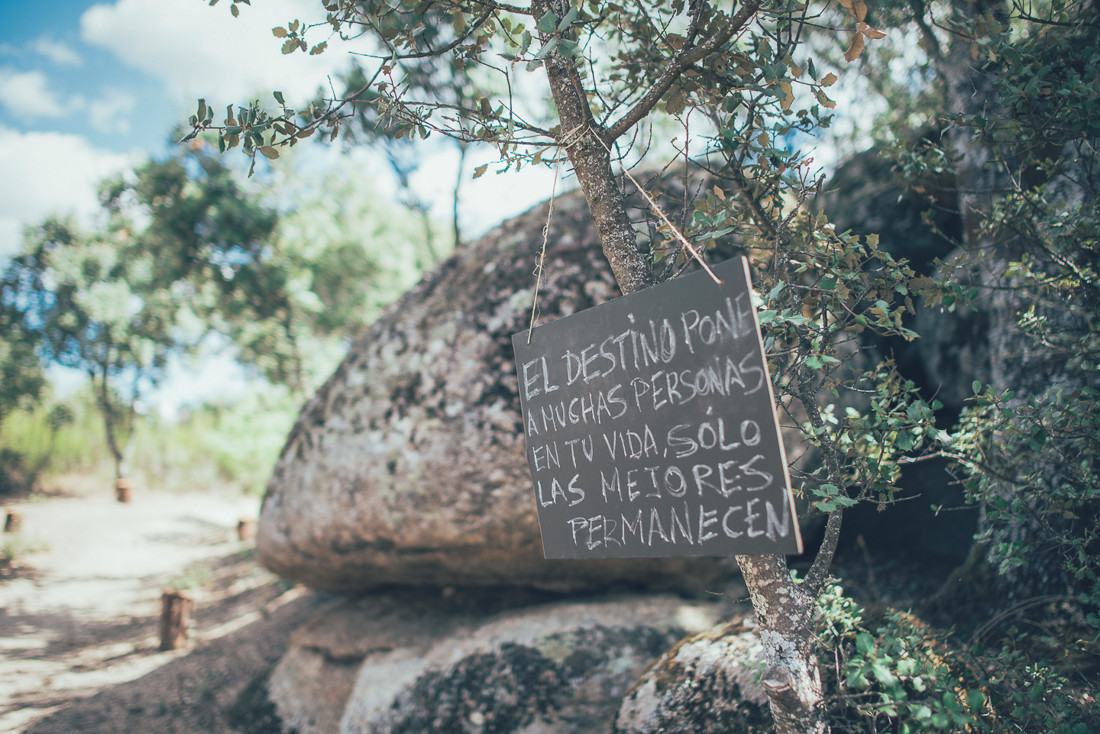 EL DESTINO PONE
A MUCHAS PERSONAS
EN TU VIDA, SÓLO
LAS MEJORES
PERMANECEN